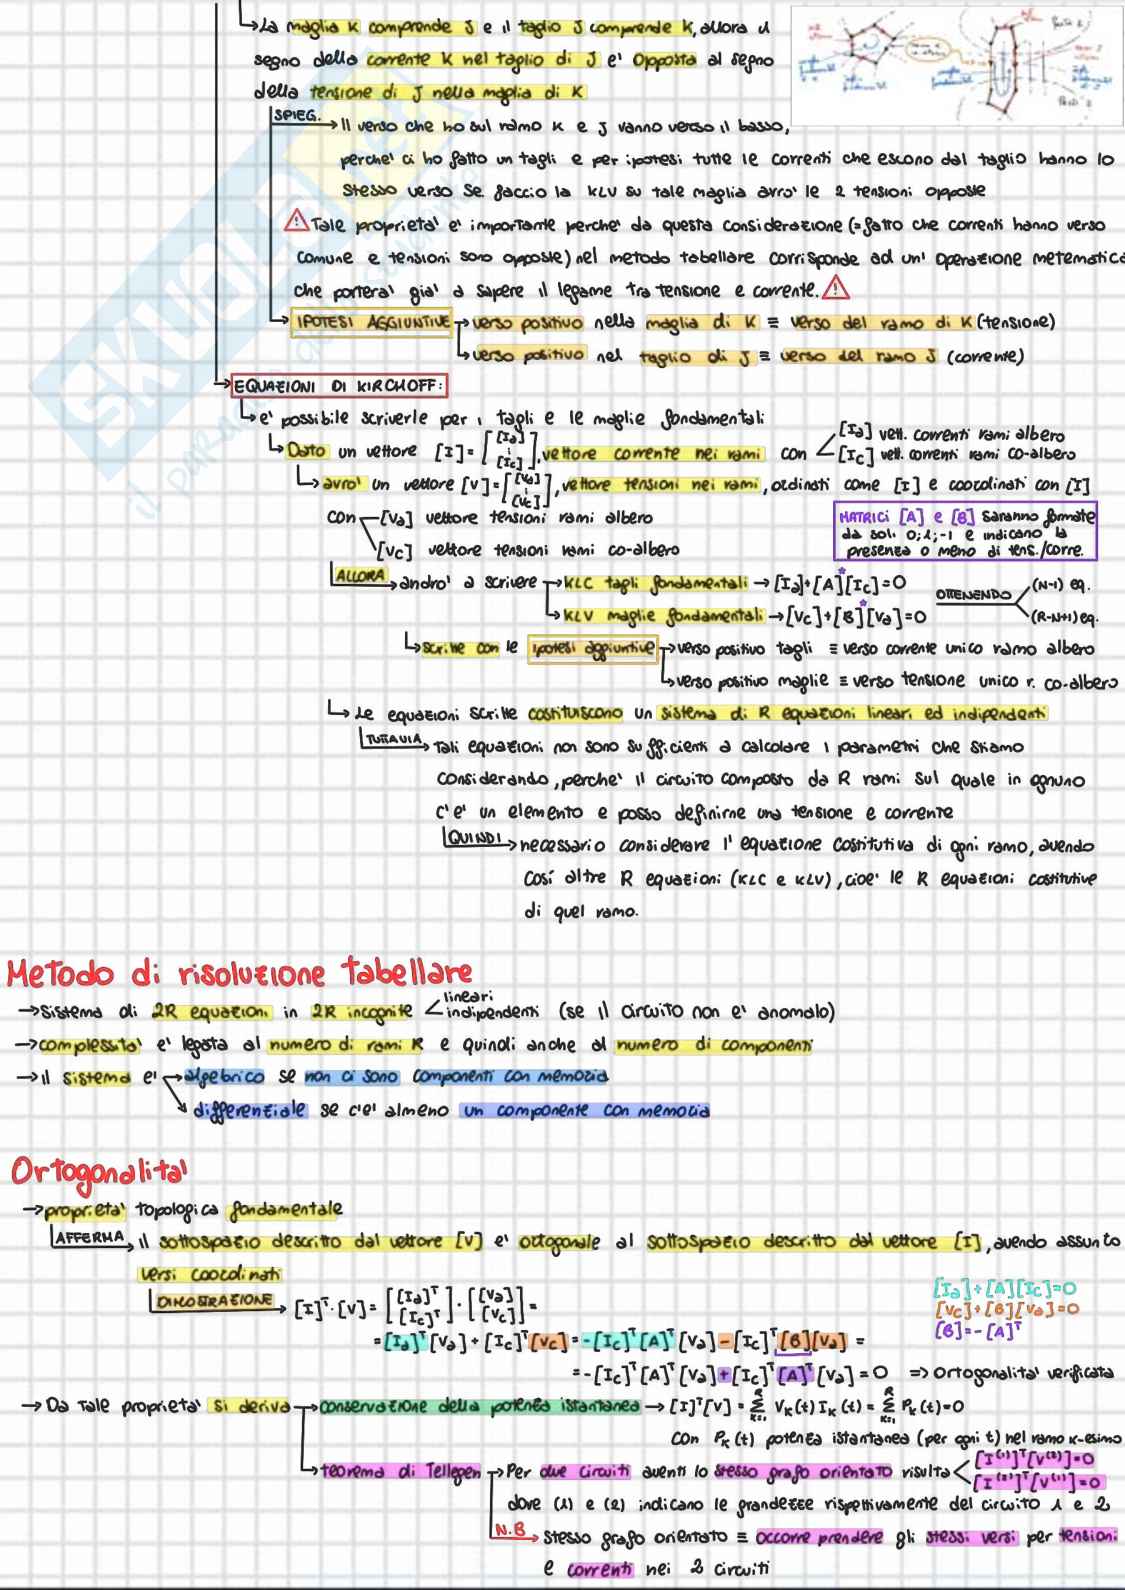 La maglia K comprende J e il taglio J comprende K, allora il
segno della corrente K nel taglio di J e' opposta al segno
della tensione di J nella maglia di K
SPIEG. → Il verso che ho sul ramo K e J vanno verso il basso,
perche' ci ho fatto un tagli e per ipotesi tutte le correnti che escono dal taglio hanno lo
stesso verso se faccio la KLV su tale maglia avro' le 2 tensioni opposte
⚠ Tale proprieta' e' importante perche' da questa considerazione (=fatto che correnti hanno verso
comune e tensioni sono opposte) nel metodo tabellare corrisponde ad un' operazione metematica
che portera' gia' a sapere il legame tra tensione e corrente. ⚠
IPOTESI AGGIUNTIVE → verso positivo nella maglia di K ≡ verso del ramo di K (tensione)
→ verso positivo nel taglio di J ≡ verso del ramo J (corrente)
→ EQUAZIONI DI KIRCHOFF:
e' possibile scriverle per i tagli e le maglie fondamentali
Dato un vettore [I]=[[Ia] [Ic]], vettore corrente nei rami con [Ia] vett. correnti rami albero
[Ic] vett. correnti rami co-albero
avro' un vettore [V]=[[Va] [Vc]], vettore tensioni nei rami, ordinati come [I] e coordinati con [I]
con [Va] vettore tensioni rami albero
[Vc] vettore tensioni rami co-albero
MATRICI [A] e [B] saranno formate
da soli 0;1;-1 e indicano la
presenza o meno di tens./corre.
ALLORA → andro' a scrivere → KLC tagli fondamentali → [Ia]+[A]*[Ic]=0 OTTENENDO (N-1) eq.
→ KLV maglie fondamentali → [Vc]+[B]*[Va]=0 (R-N+1) eq.
scritte con le ipotesi aggiuntive → verso positivo tagli ≡ verso corrente unico ramo albero
→ verso positivo maglie ≡ verso tensione unico r. co-albero
Le equazioni scritte costituiscono un sistema di R equazioni lineari ed indipendenti
TUTTAVIA → tali equazioni non sono sufficienti a calcolare i parametri che stiamo
considerando, perche' il circuito composto da R rami sul quale in ognuno
c'e' un elemento e posso definirne una tensione e corrente
QUINDI → necessario considerare l'equazione costitutiva di ogni ramo, avendo
cosi altre R equazioni (KLC e KLV), cioe' le R equazioni costitutive
di quel ramo.
Metodo di risoluzione tabellare
→ Sistema di 2R equazioni in 2R incognite lineari
indipendenti (se il circuito non e' anomalo)
→ complessita' e' legata al numero di rami R e quindi anche al numero di componenti
→ il sistema e' → algebrico se non ci sono componenti con memoria
differenziale se c'e' almeno un componente con memoria
Ortogonalita'
→ proprieta' topologica fondamentale
AFFERMA → il sottospazio descritto dal vettore [V] e' ortogonale al sottospazio descritto dal vettore [I], avendo assunto
versi coordinati
DIMOSTRAZIONE → [I]ᵀ·[V] = [[Ia]ᵀ [Ic]ᵀ]·[[Va] [Vc]] =
= [Ia]ᵀ[Va] + [Ic]ᵀ[Vc] = -[Ic]ᵀ[A]ᵀ[Va] - [Ic]ᵀ[B][Va] =
= -[Ic]ᵀ[A]ᵀ[Va] + [Ic]ᵀ[A]ᵀ[Va] = 0 => Ortogonalita' verificata
[Ia]+[A][Ic]=0
[Vc]+[B][Va]=0
[B]=-[A]ᵀ
→ Da tale proprieta' si deriva → conservazione della potenza istantanea → [I]ᵀ[V] = Σ(K=1, R) VK(t) IK(t) = Σ(K=1, R) PK(t)=0
con PK(t) potenza istantanea (per ogni t) nel ramo K-esimo
→ teorema di Tellegen → Per due circuiti aventi lo stesso grafo orientato risulta [I⁽¹⁾]ᵀ[V⁽²⁾]=0
[I⁽²⁾]ᵀ[V⁽¹⁾]=0
dove (1) e (2) indicano le grandezze rispettivamente del circuito 1 e 2
N.B → stesso grafo orientato ≡ occorre prendere gli stessi versi per tensioni
e correnti nei 2 circuiti